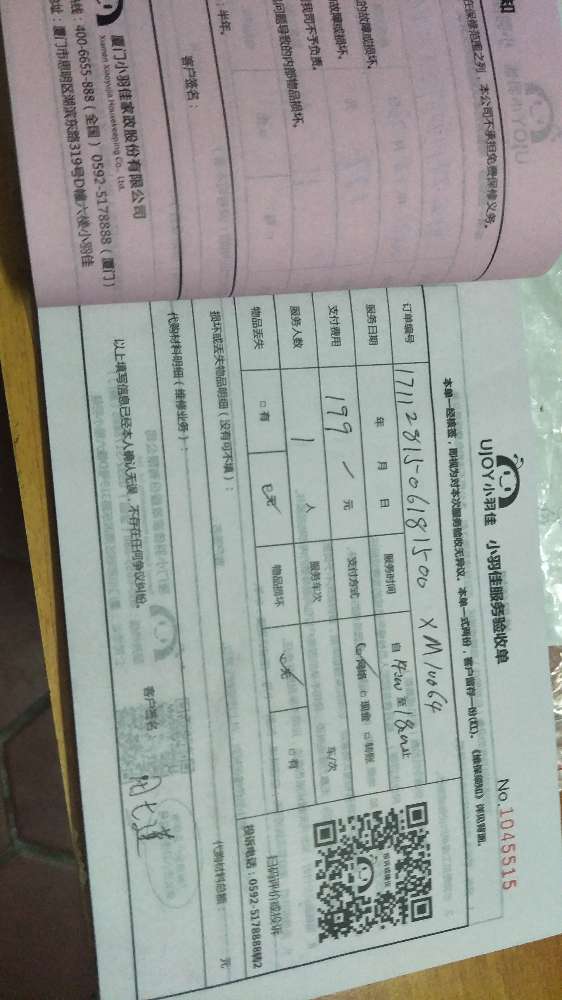 知
在保修范围之列，本公司不承担免费保修义务。
的故障或损坏。
故障或损坏。
我司不予负责。
问题导致的内部物品损坏。
半年。
客户签名：
厦门小羽佳家政股份有限公司
Xiamen Xiaoyujia Housekeeping Co., Ltd.
线：400-6655-888（全国） 0592-5178888（厦门）
址：厦门市思明区湖滨东路319号D幢六楼小羽佳
UJOY小羽佳 小羽佳服务验收单 No.1045515
本单一经核签，即视为对本次服务验收无异议。本单一式两份，客户留存一份(红)。《维保须知》详见背面。
订单编号 17112815-06181500 XM10064
服务日期 年 月 日 服务时间 自 至 止
支付费用 199 元 支付方式 网络 现金 转账
服务人数 1 人 服务车次 车/次
物品丢失 有 无 物品损坏 无 有
损坏或丢失物品明细（没有可不填）：
扫码评价或投诉
投诉电话：0592-5178888转2
代购材料明细（维修业务）： 代购材料总额： 元
以上填写信息已经本人确认无误，不存在任何争议纠纷。 客户签名：